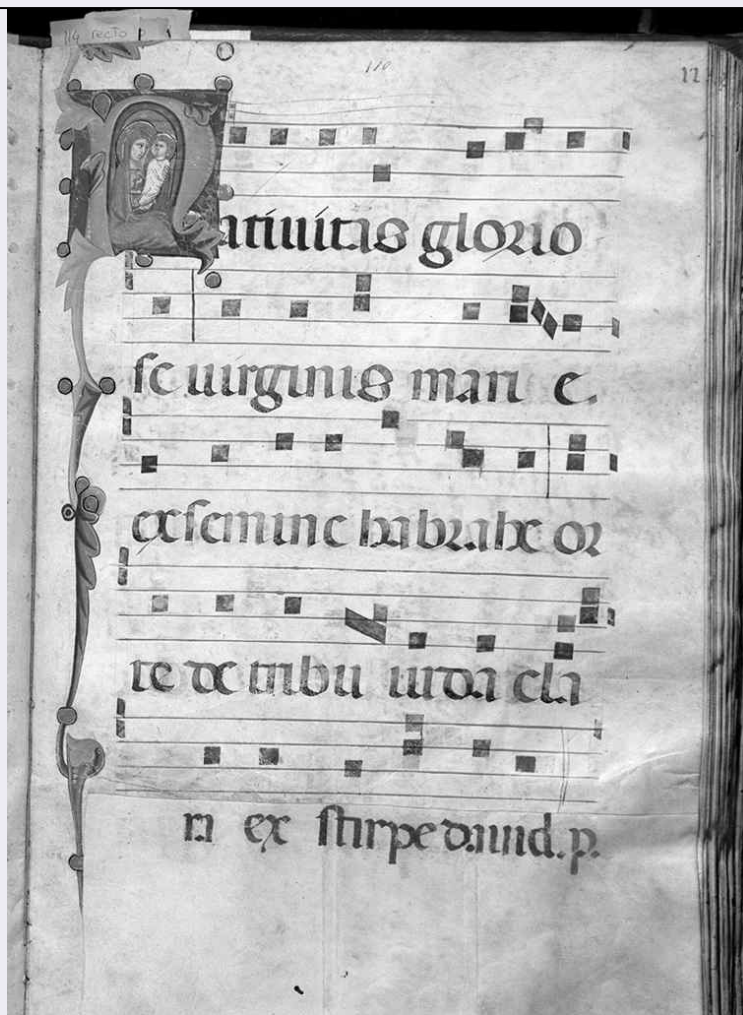 114 recto
110
Natiuitas glorio
se uirginis mari e.
ex semine habrahe or
te de tribu iuda cla
ra ex stirpe dauid. p.